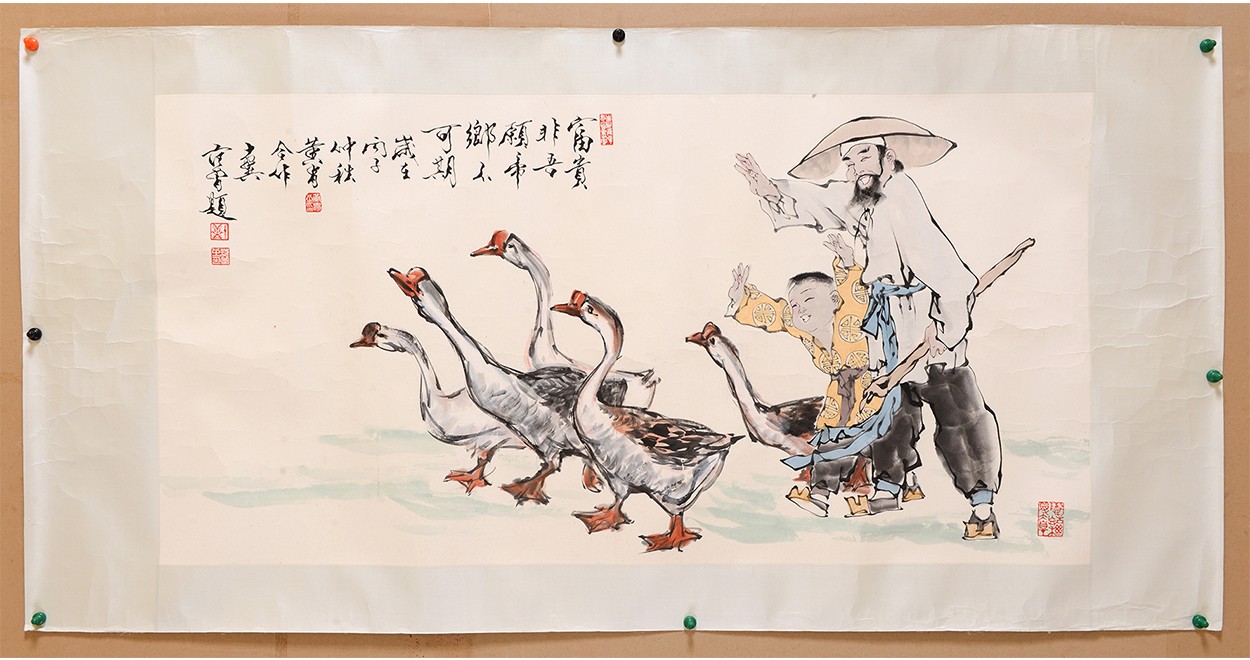 富貴
非吾
願帝
鄉不
可期
歲在
丙子
仲秋
黃胄
合作
十翼
范曾題